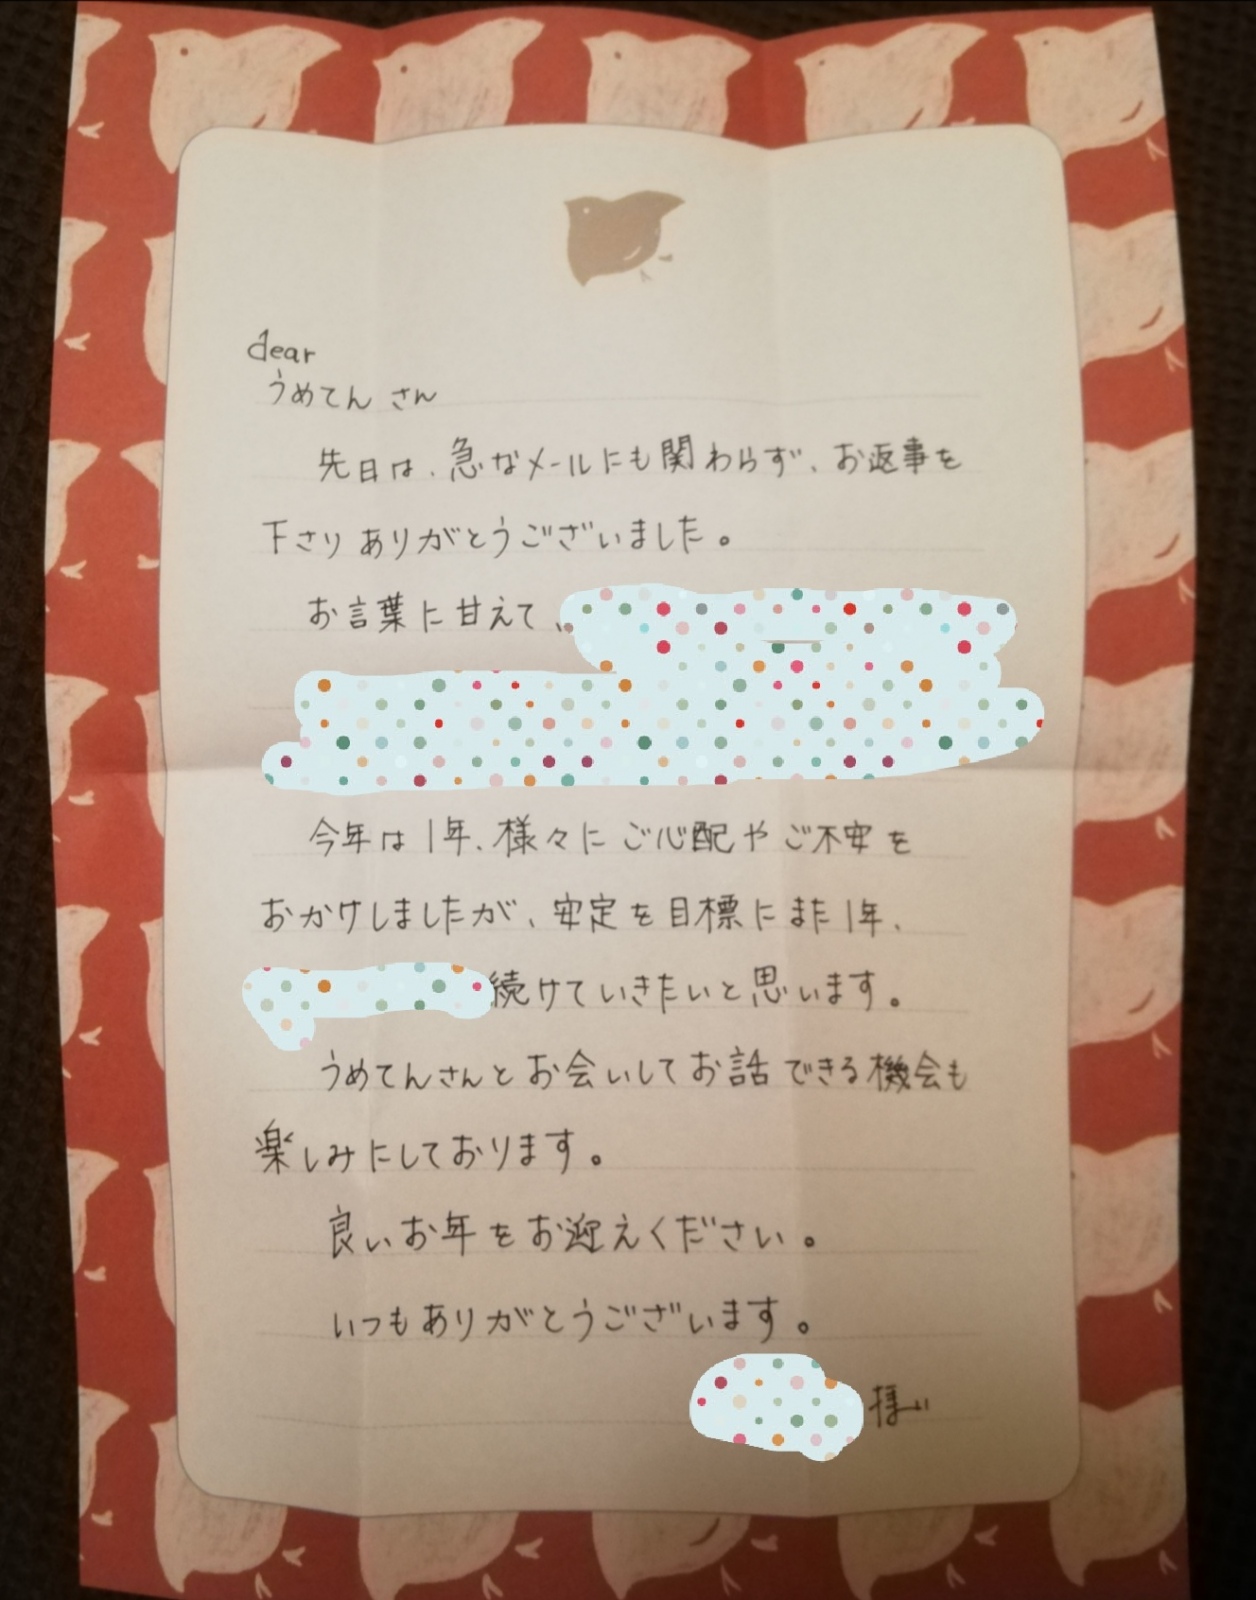 dear
うめてん さん
先日は、急なメールにも関わらず、お返事を
下さり ありがとうございました。
お言葉に甘えて、
今年は1年、様々に ご心配や ご不安を
おかけしましたが、安定を目標にまた1年、
続けていきたいと思います。
うめてんさんと お会いして お話できる機会も
楽しみにしております。
良いお年をお迎えください。
いつもありがとうございます。